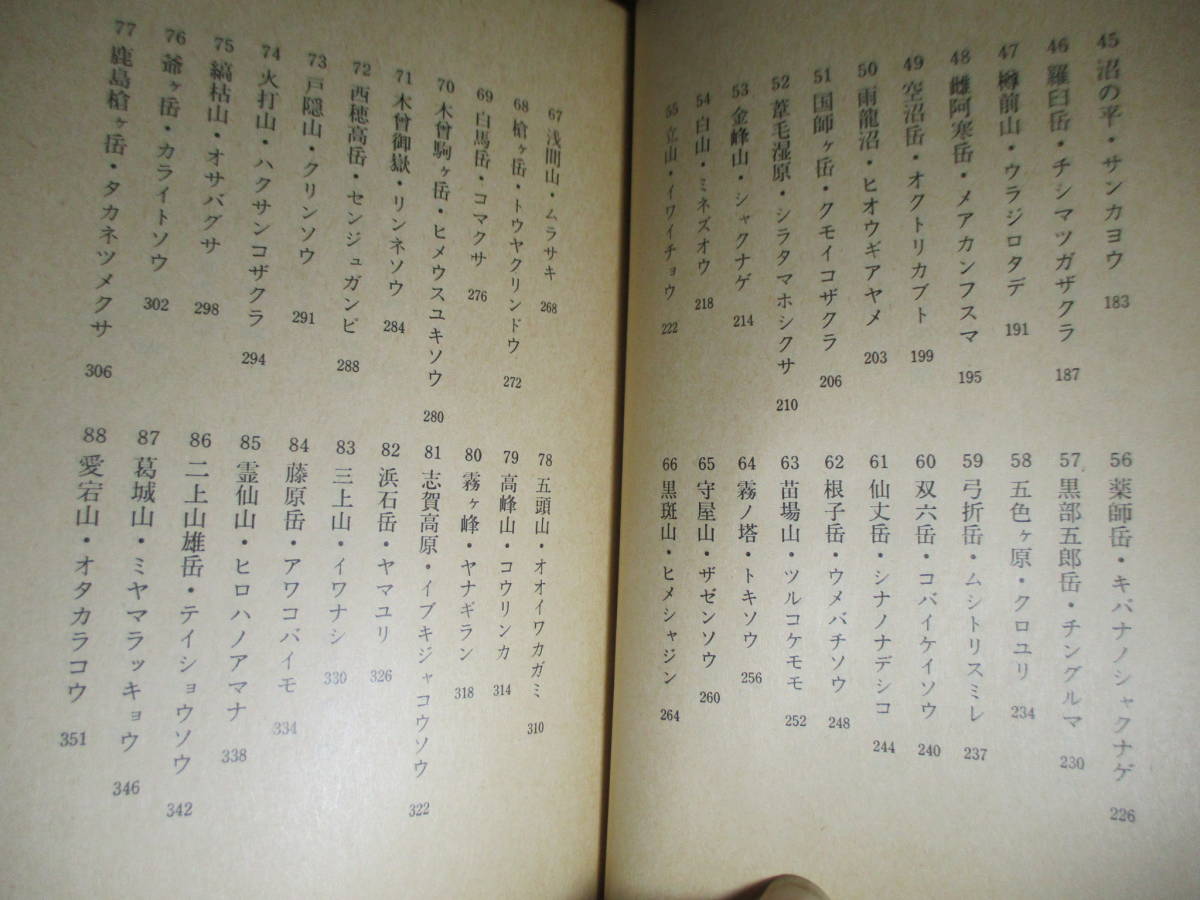 45 沼の平・サンカヨウ 183
46 羅臼岳・チシマツガザクラ 187
47 樽前山・ウラジロタデ 191
48 雌阿寒岳・メアカンフスマ 195
49 空沼岳・オクトリカブト 199
50 雨龍沼・ヒオウギアヤメ 203
51 国師ヶ岳・クモイコザクラ 206
52 葦毛湿原・シラタマホシクサ 210
53 金峰山・シャクナゲ 214
54 白山・ミネズオウ 218
55 立山・イワイチョウ 222
56 薬師岳・キバナノシャクナゲ 226
57 黒部五郎岳・チングルマ 230
58 五色ヶ原・クロユリ 234
59 弓折岳・ムシトリスミレ 237
60 双六岳・コバイケイソウ 240
61 仙丈岳・シナノナデシコ 244
62 根子岳・ウメバチソウ 248
63 苗場山・ツルコケモモ 252
64 霧ノ塔・トキソウ 256
65 守屋山・ザゼンソウ 260
66 黒斑山・ヒメシャジン 264
67 浅間山・ムラサキ 268
68 槍ヶ岳・トウヤクリンドウ 272
69 白馬岳・コマクサ 276
70 木曾駒ヶ岳・ヒメウスユキソウ 280
71 木曾御嶽・リンネソウ 284
72 西穂高岳・センジュガンピ 288
73 戸隠山・クリンソウ 291
74 火打山・ハクサンコザクラ 294
75 縞枯山・オサバグサ 298
76 爺ヶ岳・カライトソウ 302
77 鹿島槍ヶ岳・タカネツメクサ 306
78 五頭山・オオイワカガミ 310
79 高峰山・コウリンカ 314
80 霧ヶ峰・ヤナギラン 318
81 志賀高原・イブキジャコウソウ 322
82 浜石岳・ヤマユリ 326
83 三上山・イワナシ 330
84 藤原岳・アワコバイモ 334
85 霊仙山・ヒロハノアマナ 338
86 二上山雄岳・テイショウソウ 342
87 葛城山・ミヤマラッキョウ 346
88 愛宕山・オタカラコウ 351